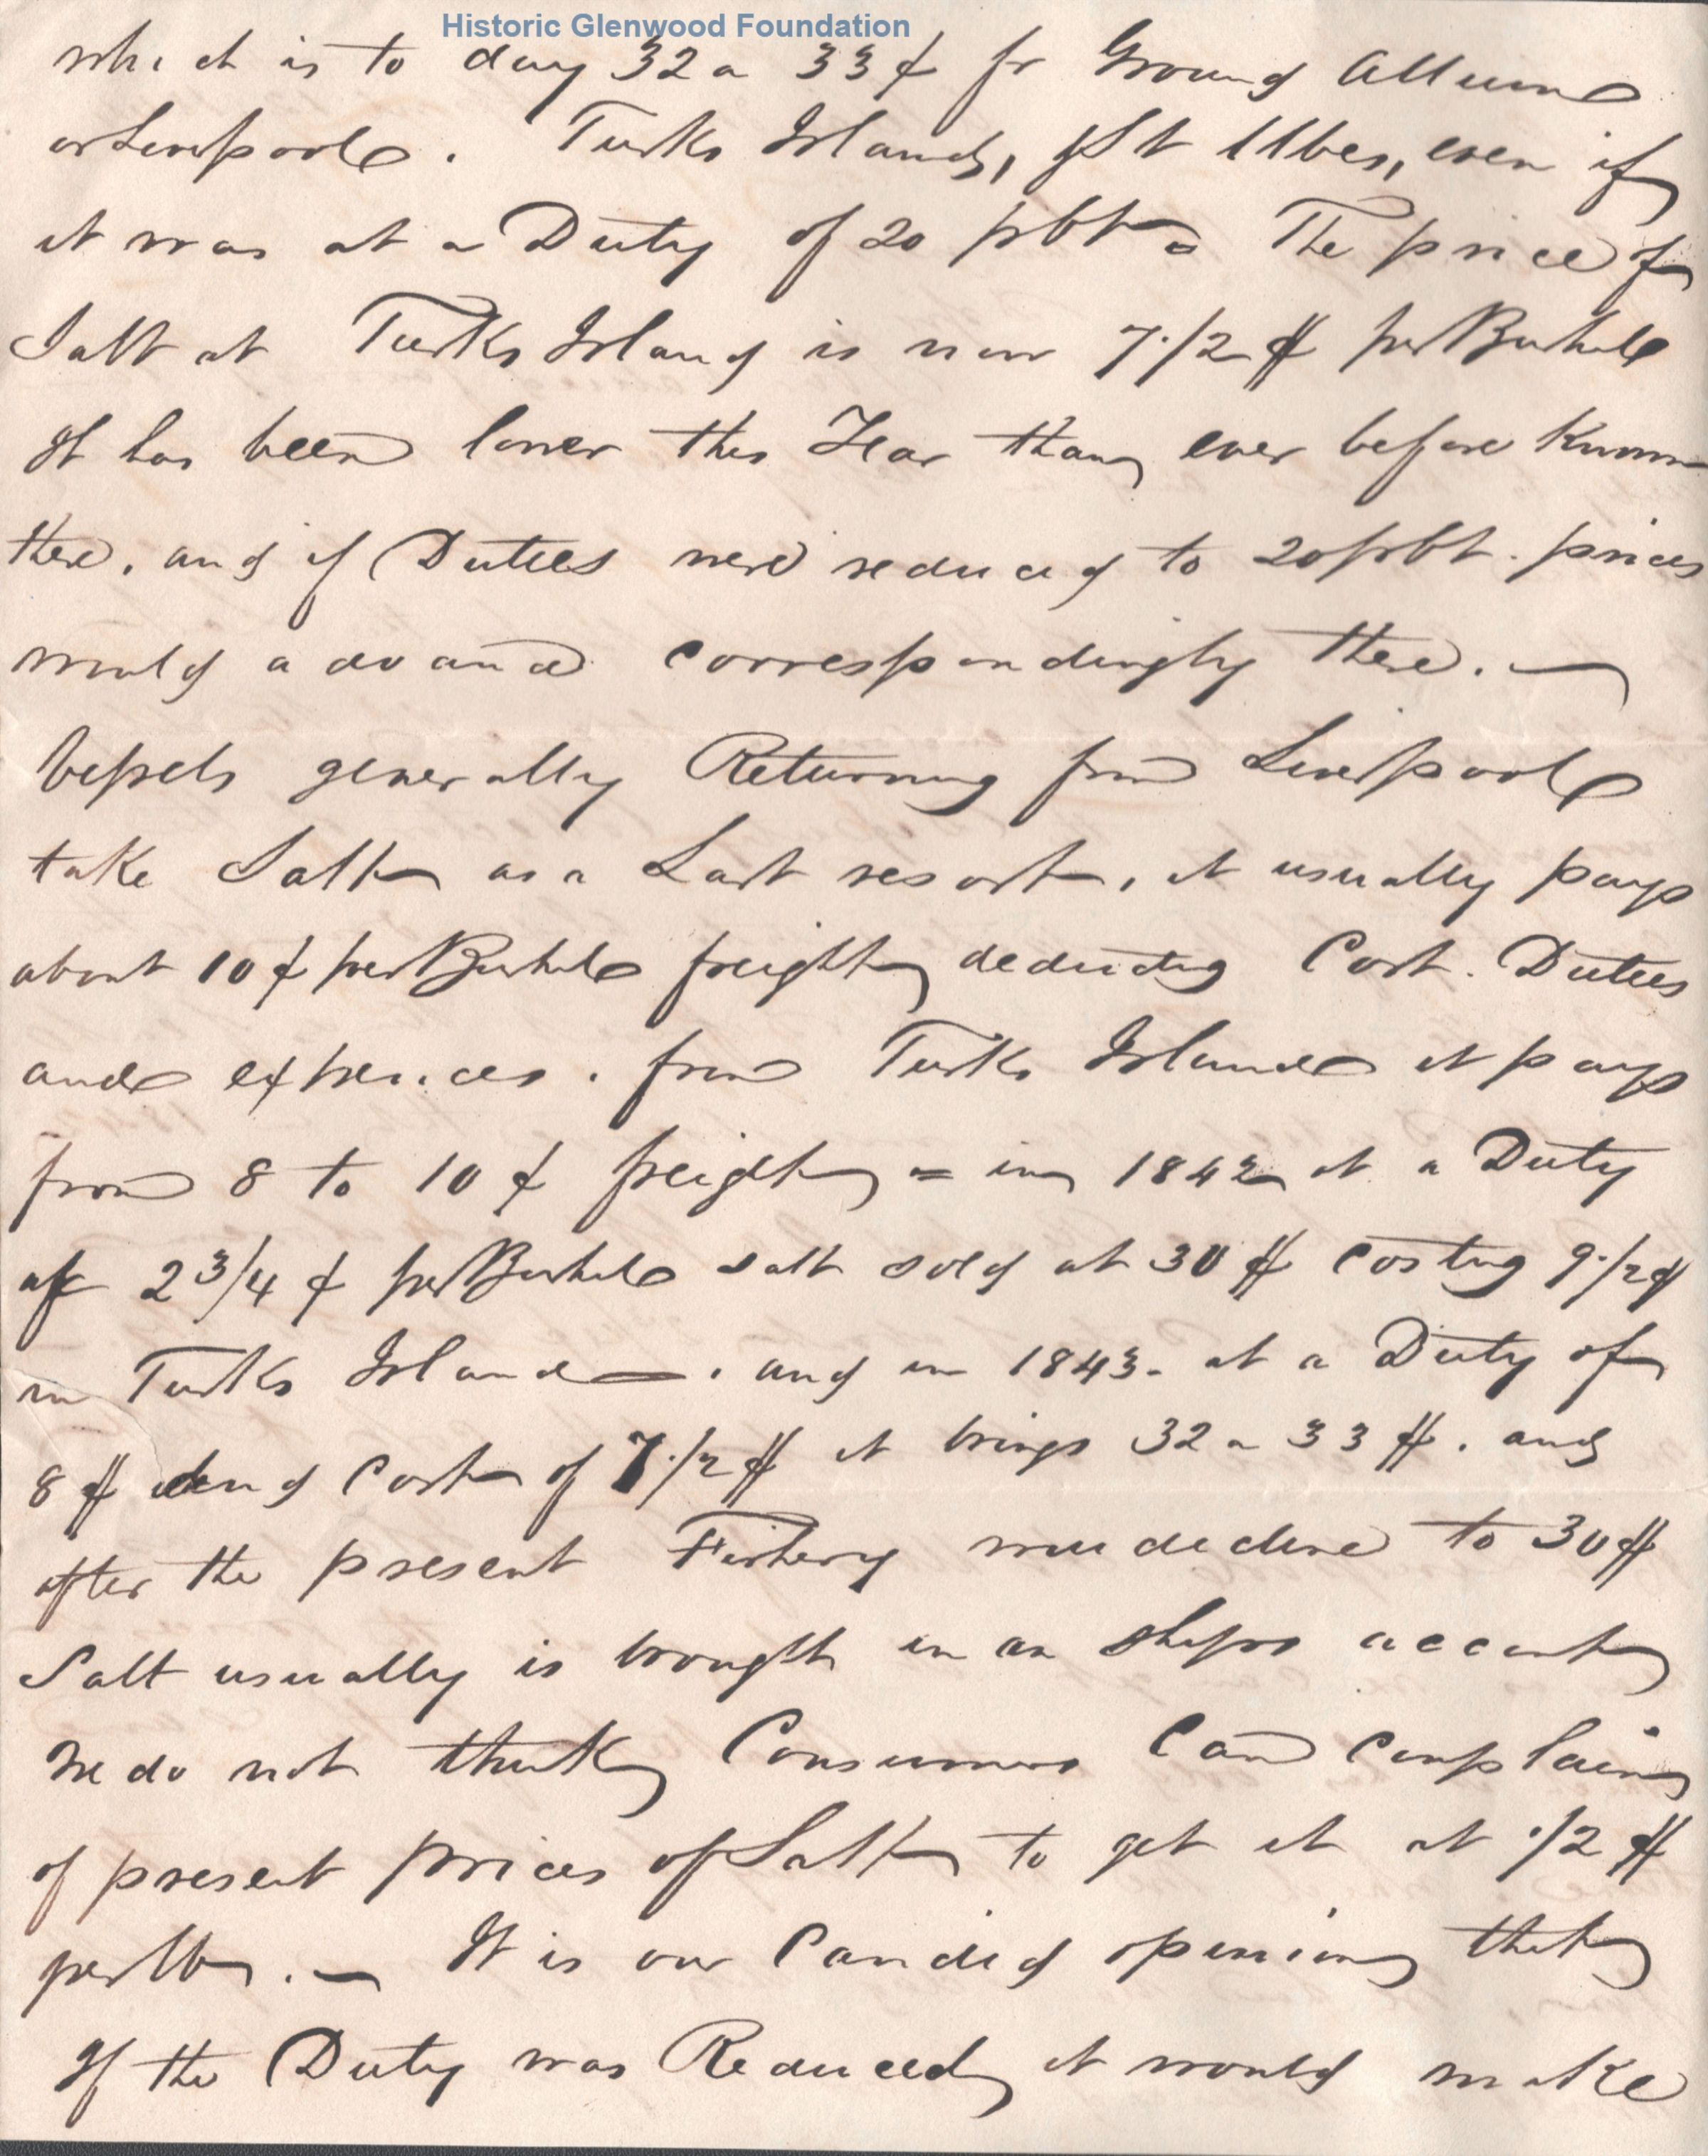 Historic Glenwood Foundation
which is to day 32 a 33 ¢ for Ground Allum
or Liverpool. Turks Island, St Ubes, even if
it was at a Duty of 20 pCt = The price of
Salt at Turks Island is now 7 1/2 ¢ per Bushel
It has been lower this Year than ever before Known
there, and if Duties were reduced to 20 pCt. prices
would advance correspondingly there. —
Vessels generally Returning from Liverpool
take Salt as a Last resort, it usually pays
about 10 ¢ per Bushel freight deducting Cost. Duties
and expences. from Turks Island it pays
from 8 to 10 ¢ freight = in 1842 at a Duty
of 2 3/4 ¢ per Bushel salt sold at 30 ¢ costing 9 1/2 ¢
in Turks Island —. and in 1843. at a Duty of
8 ¢ and Cost of 7 1/2 ¢ it brings 32 a 33 ¢. and
after the present Fishery will decline to 30 ¢
Salt usually is brought in on ships account
We do not think Consumers Can Complain
of present prices of Salt to get it at 1/2 ¢
per lb. — It is our Candid opinion that
If the Duty was Reduced it would make